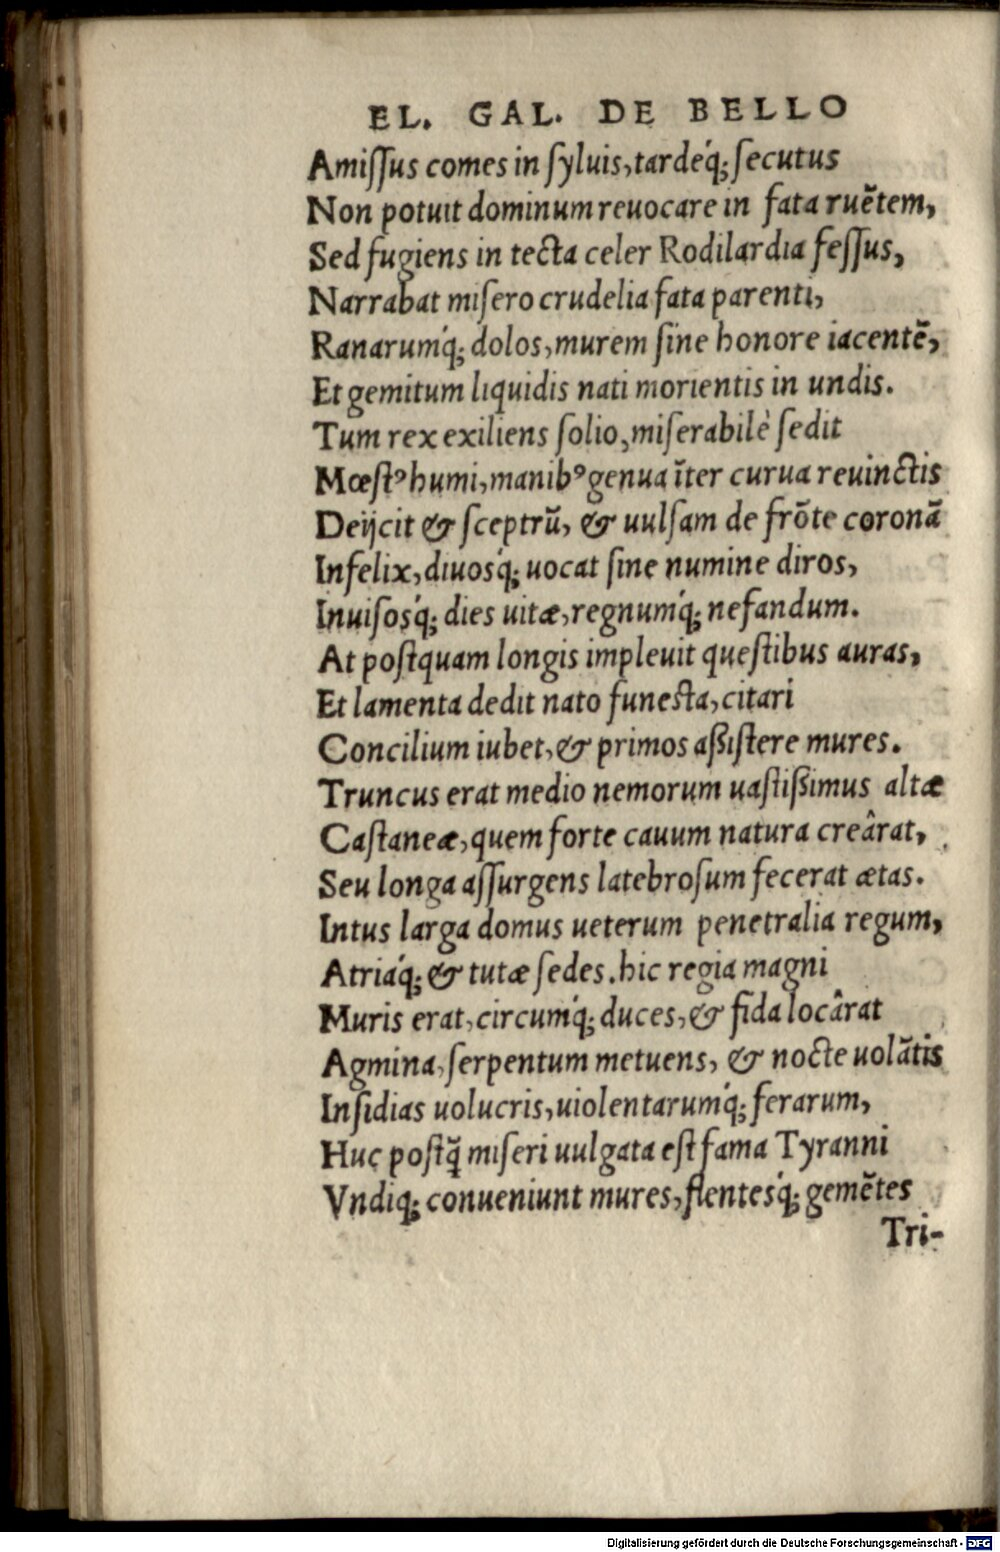 EL. GAL. DE BELLO
Amiſſus comes in ſyluis, tardeq́; ſecutus
Non potuit dominum reuocare in fata ruẽtem,
Sed fugiens in tecta celer Rodilardia feſſus,
Narrabat miſero crudelia fata parenti,
Ranarumq́; dolos, murem ſine honore iacentẽ,
Et gemitum liquidis nati morientis in undis.
Tum rex exiliens ſolio, miſerabilè ſedit
Mœſtꝰ humi, manibꝰ genua ĩter curua reuinctis
Deijcit & ſceptrũ, & uulſam de frõte coronã
Infelix, diuosq́; uocat ſine numine diros,
Inuiſosq́; dies uitæ, regnumq́; nefandum.
At poſtquam longis impleuit queſtibus auras,
Et lamenta dedit nato funeſta, citari
Concilium iubet, & primos aßiſtere mures.
Truncus erat medio nemorum uaſtißimus altæ
Caſtaneæ, quem forte cauum natura creârat,
Seu longa aſſurgens latebroſum fecerat ætas.
Intus larga domus ueterum penetralia regum,
Atriaq́; & tutæ ſedes. hic regia magni
Muris erat, circumq́; duces, & fida locârat
Agmina, ſerpentum metuens, & nocte uolãtis
Inſidias uolucris, uiolentarumq́; ferarum,
Huc poſtq̃ miſeri uulgata eſt fama Tyranni
Vndiq; conueniunt mures, flentesq́; gemẽtes
Tri-
Digitalisierung gefördert durch die Deutsche Forschungsgemeinschaft - DFG